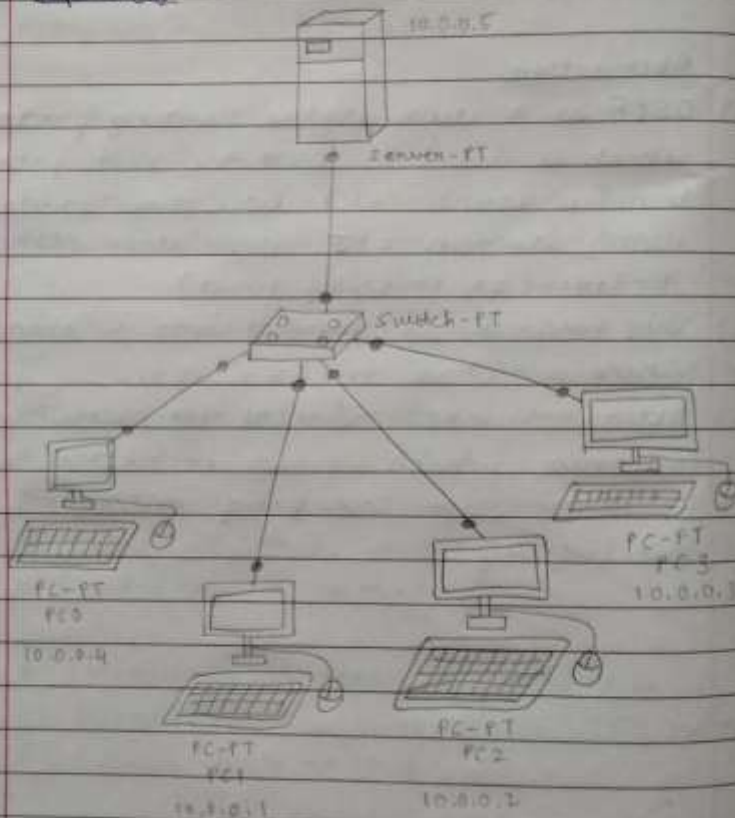 10.0.0.5
Server-PT
Switch-PT
PC-PT
PC3
10.0.0.3
PC-PT
PC0
10.0.0.4
PC-PT
PC1
10.0.0.1
PC-PT
PC2
10.0.0.2